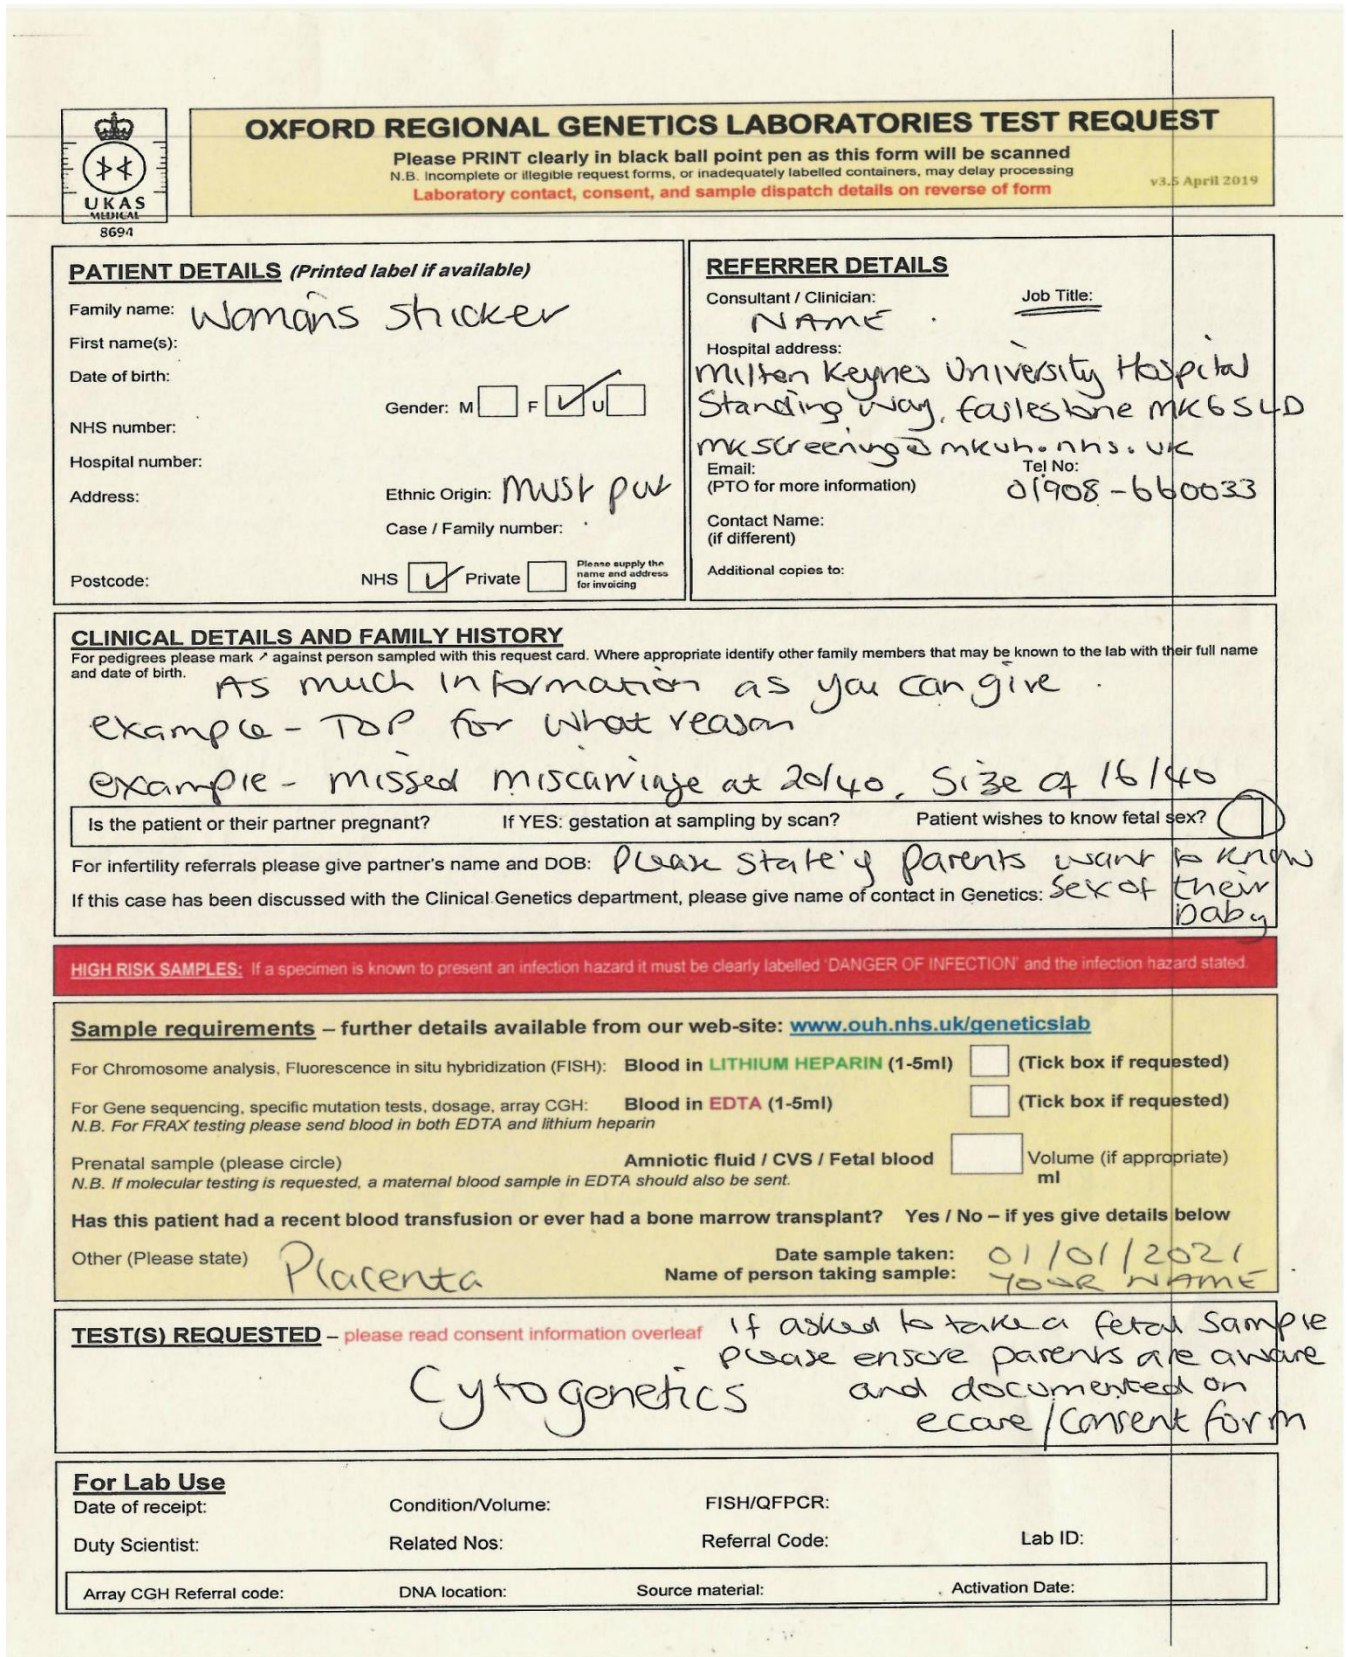 UKAS
MEDICAL
8694
OXFORD REGIONAL GENETICS LABORATORIES TEST REQUEST
Please PRINT clearly in black ball point pen as this form will be scanned
N.B. Incomplete or illegible request forms, or inadequately labelled containers, may delay processing
Laboratory contact, consent, and sample dispatch details on reverse of form
v3.5 April 2019
PATIENT DETAILS (Printed label if available)
Family name: Woman's sticker
First name(s):
Date of birth:
Gender: M F U
NHS number:
Hospital number:
Address:
Ethnic Origin: Must put
Case / Family number:
Postcode:
NHS Private
Please supply the
name and address
for invoicing
REFERRER DETAILS
Consultant / Clinician: Job Title:
NAME
Hospital address:
Milton Keynes University Hospital
Standing Way, Eaglestone MK6 5LD
mkscreening@mkuh.nhs.uk
Email: Tel No:
(PTO for more information) 01908-660033
Contact Name:
(if different)
Additional copies to:
CLINICAL DETAILS AND FAMILY HISTORY
For pedigrees please mark ↗ against person sampled with this request card. Where appropriate identify other family members that may be known to the lab with their full name
and date of birth.
As much information as you can give.
example - TOP for what reason
example - missed miscarriage at 20/40, Size of 16/40
Is the patient or their partner pregnant? If YES: gestation at sampling by scan? Patient wishes to know fetal sex?
For infertility referrals please give partner's name and DOB: Please state if parents want to know
If this case has been discussed with the Clinical Genetics department, please give name of contact in Genetics: sex of their
baby
HIGH RISK SAMPLES: If a specimen is known to present an infection hazard it must be clearly labelled 'DANGER OF INFECTION' and the infection hazard stated.
Sample requirements – further details available from our web-site: www.ouh.nhs.uk/geneticslab
For Chromosome analysis, Fluorescence in situ hybridization (FISH): Blood in LITHIUM HEPARIN (1-5ml) (Tick box if requested)
For Gene sequencing, specific mutation tests, dosage, array CGH: Blood in EDTA (1-5ml) (Tick box if requested)
N.B. For FRAX testing please send blood in both EDTA and lithium heparin
Prenatal sample (please circle) Amniotic fluid / CVS / Fetal blood Volume (if appropriate)
ml
N.B. If molecular testing is requested, a maternal blood sample in EDTA should also be sent.
Has this patient had a recent blood transfusion or ever had a bone marrow transplant? Yes / No – if yes give details below
Other (Please state) Placenta
Date sample taken: 01/01/2021
Name of person taking sample: YOUR NAME
TEST(S) REQUESTED – please read consent information overleaf
If asked to take a fetal sample
please ensure parents are aware
and documented on
ecare/consent form
Cytogenetics
For Lab Use
Date of receipt: Condition/Volume: FISH/QFPCR:
Duty Scientist: Related Nos: Referral Code: Lab ID:
Array CGH Referral code: DNA location: Source material: Activation Date: